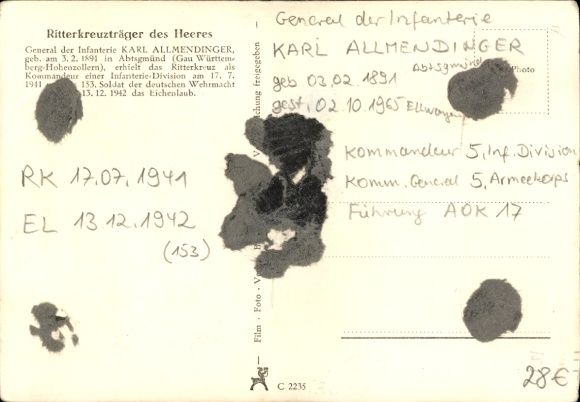 Ritterkreuzträger des Heeres
General der Infanterie KARL ALLMENDINGER,
geb. am 3. 2. 1891 in Abtsgmünd (Gau Württem-
berg-Hohenzollern), erhielt das Ritterkreuz als
Kommandeur einer Infanterie-Division am 17. 7.
1941 153. Soldat der deutschen Wehrmacht
13. 12. 1942 das Eichenlaub.
RK 17.07.1941
EL 13.12.1942
(153)
Film - Foto - V
chung freigegeben
C 2235
General der Infanterie
KARL ALLMENDINGER
geb 03.02.1891 Abtsgmünd
gest. 02.10.1965 Ellwangen
Photo
Kommandeur 5. Inf. Division
Komm. General 5. Armeekorps
Führung AOK 17
28€